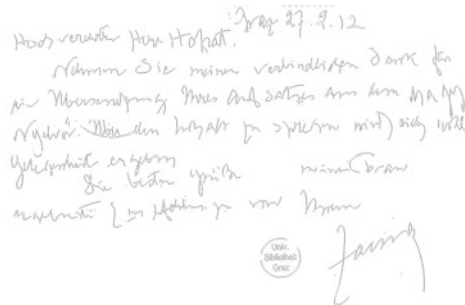 Prag 27.9.12
Hochverehrter Herr Hofrat.
Nehmen Sie meinen verbindlichsten Dank für
die Übersendung Ihres Aufsatzes aus dem
den Inhalt zu sprechen wird sich wohl
Gelegenheit ergeben
Die besten Grüße meiner Frau
von Ihrem
Univ.
Bibliothek
Graz